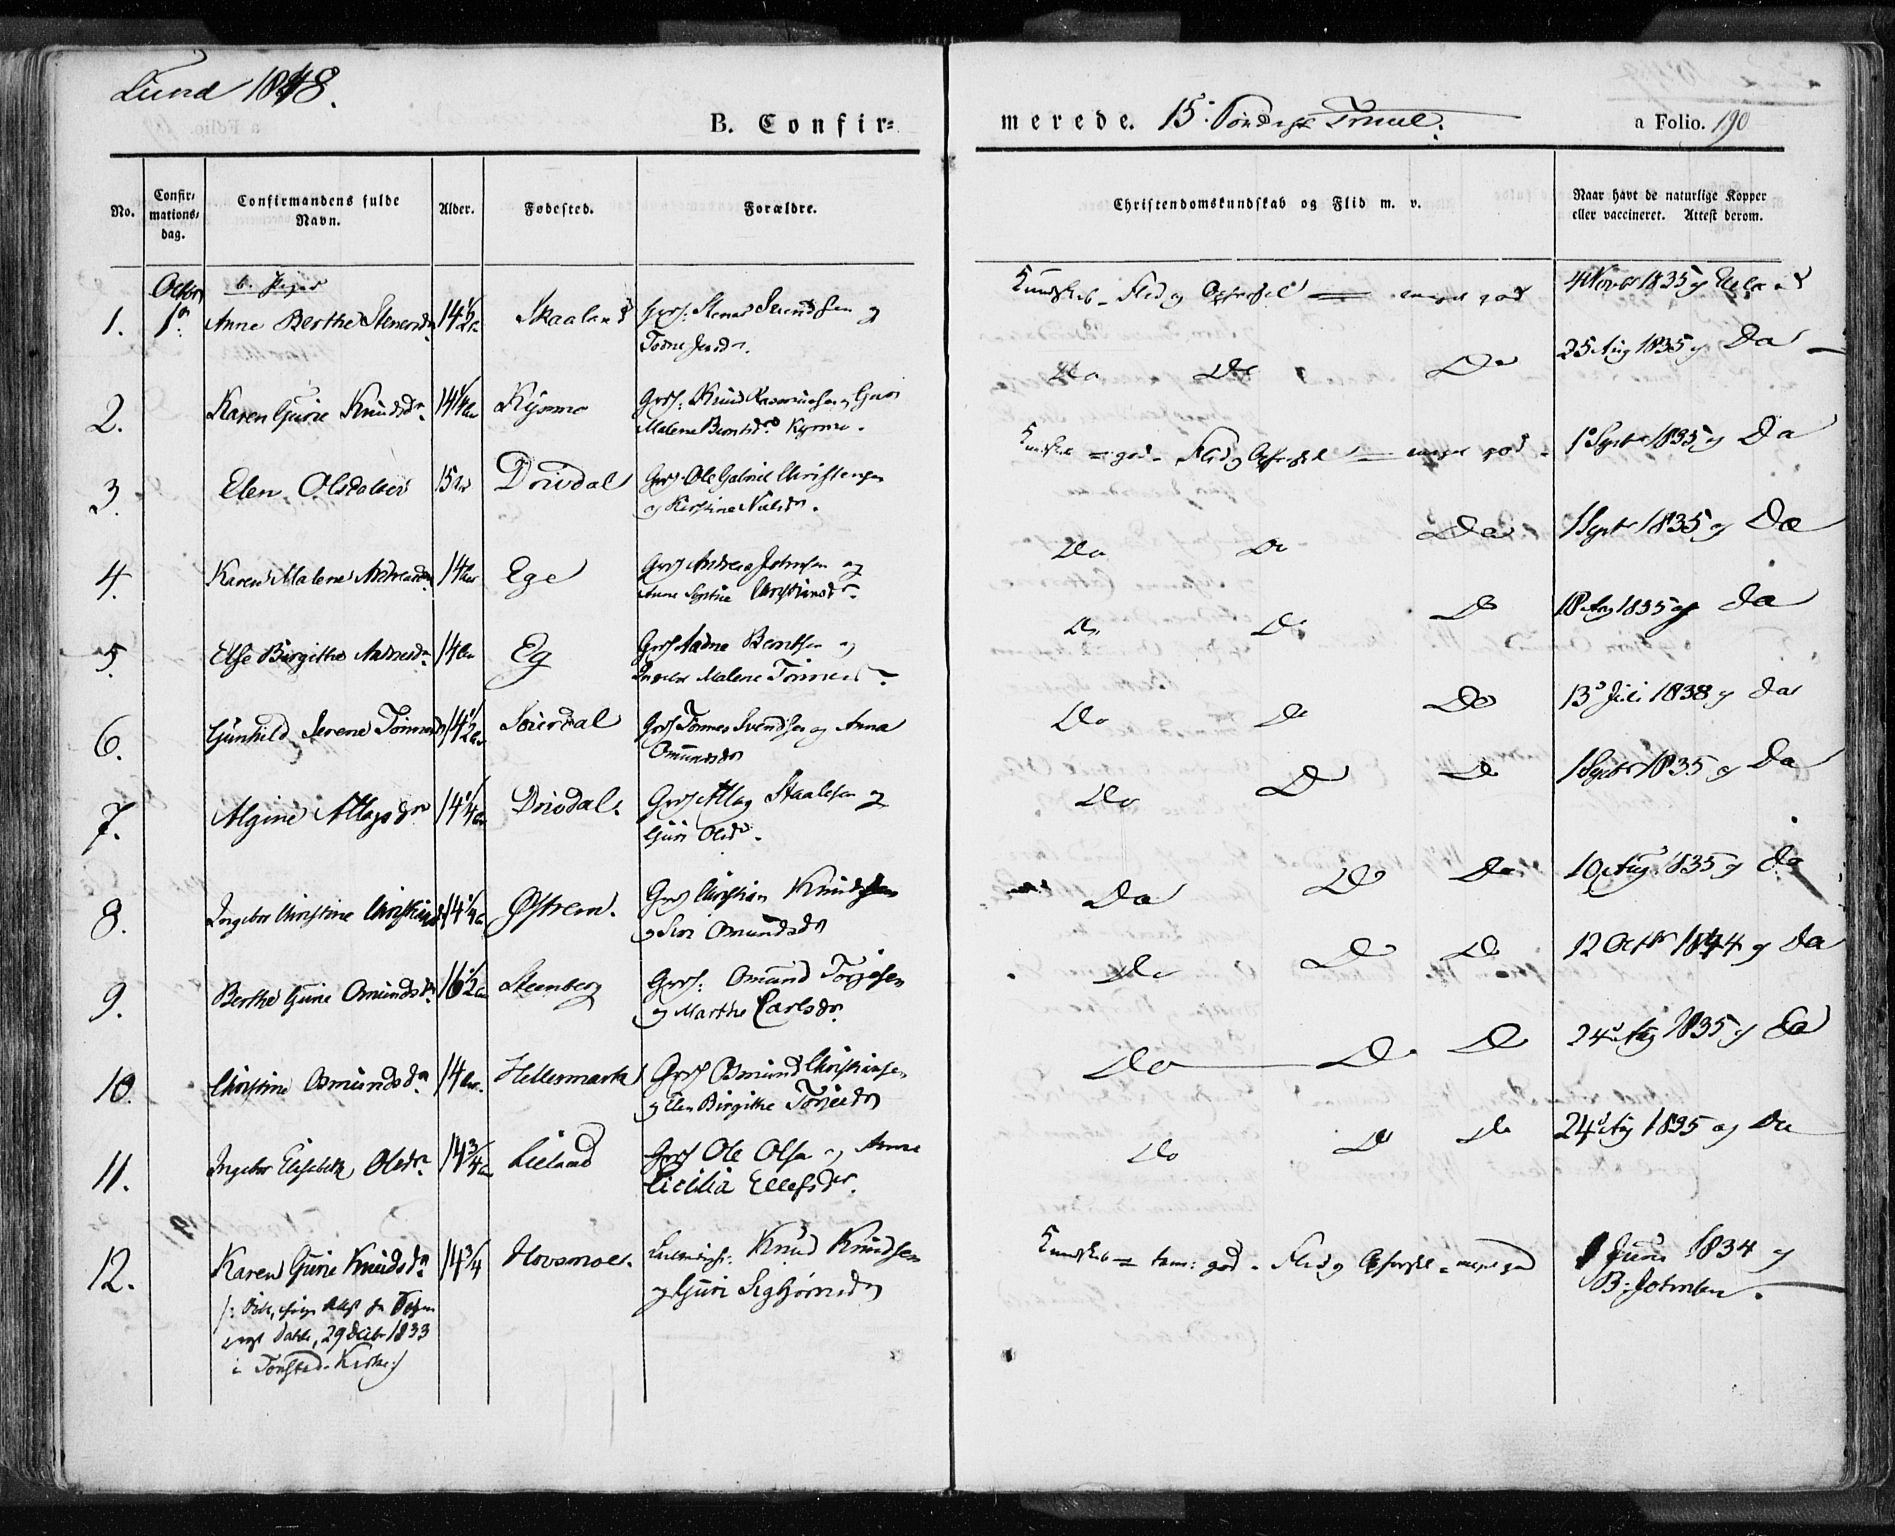 Lund 1848.
B. Confir=
merede. 15. Søndag Trinit:
a Folio. 190
No.
Confir-
mations-
dag.
Confirmandens fulde
Navn.
Alder.
Fødested.
Forældre.
Christendomskundskab og Flid m. v.
Naar havt de naturlige Kopper
eller vaccineret. Attest derom.
Octbr
b. Piger
1. 1. Anne Berthe Stenersdr 14 1/2 Skaaland Grdf: Stener Svendsen og
Kundskab - Flid og Opførsel = meget god
4 Novbr 1835 og
2. Karen Gurie Knudsdr. 14 1/4 Kjørmo Grdf: Knud Rasmussen Guri
Malene Berntsdr Kjørmo.
Do Do Do
25 Aug 1835 og Do
3. Elen Olsdatter 15 Drivdal Grdf Ole Gabriel Christensen
og Kirstine Nielsdr.
Kundskab = god - Flid og Opførsel = meget god -
1 Septbr 1835 og Do
4. Karen Malene Andreasdr. 14 Ege Grdf Andreas Johnsen og
Anne Sophie Christiansdr.
Do Do Do
1 Septbr 1835 og Do
5. Else Birgithe Aadnesdr. 14 Eg Grdf Aadne Berntsen og
Malene Tønnesdr.
Do Do Do
18 Aug 1835 og Do
6. Gunhild Serene Tønnesdr 14 1/2 Søierdal Grdf Tønnes Svendsen og Anna
Omundsdr
Do Do Do
13 Juli 1838 og Do
7. Algine Atlagsdr 14 1/4 Drivdal. Grdf Atlag Staalesen og
Guri Olsdr.
Do Do Do
1 Septbr 1835 og Do
8. Ingebor Christine Christiansdr 14 1/4 Østrem. Grdf Christian Knudsen
og Siri Omundsdr
Do Do Do
10 Aug 1835 og Do
9. Berthe Gurie Omundsdr. 16 1/2 Steenberg Grdf: Omund Torjesen
og Marthe Carlsdr.
Do Do Do
12 Octbr 1844 og Do
10. Christine Osmundsdr 14 Hellesmark Grdf Osmund Christiansen
og Elen Birgithe Torjesdr
Do Do Do
24 Aug 1835 og Do
11. Ingebor Elisabeth Olsdr. 14 3/4 Lieland Grdf Ole Olsen og Anne
Cicilia Ellefsdr.
Do Do Do
24 Aug 1835 og Do
12. Karen Gurie Knudsdr. 14 3/4 Hovsmoe. Knud Knudsen
og Guri Sigbjørnsdr
Kundskab = tem: god - Flid og Opførsel = meget god
Juni 1834 og
B. Johnsen.
29 Decbr 1833
i Tonstad Kirke)